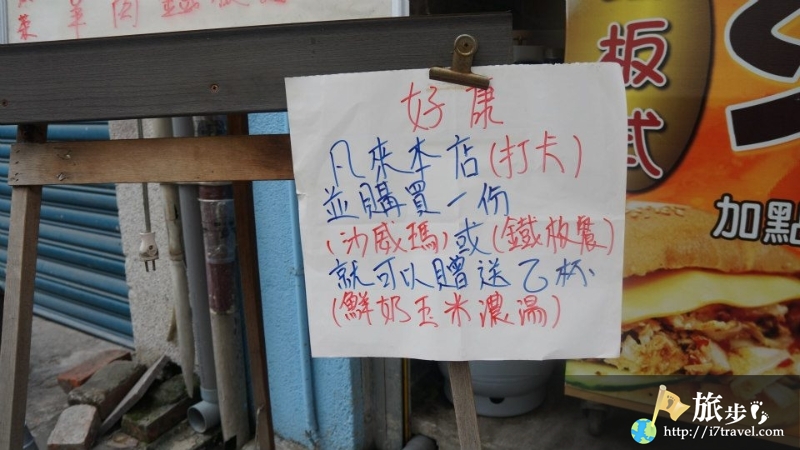 羊肉鐵板
好康
凡來本店(打卡)
並購買一份
(沙威瑪)或(鐵板餐)
就可以贈送乙杯
(鮮奶玉米濃湯)
板式
加點
旅步
http://i7travel.com